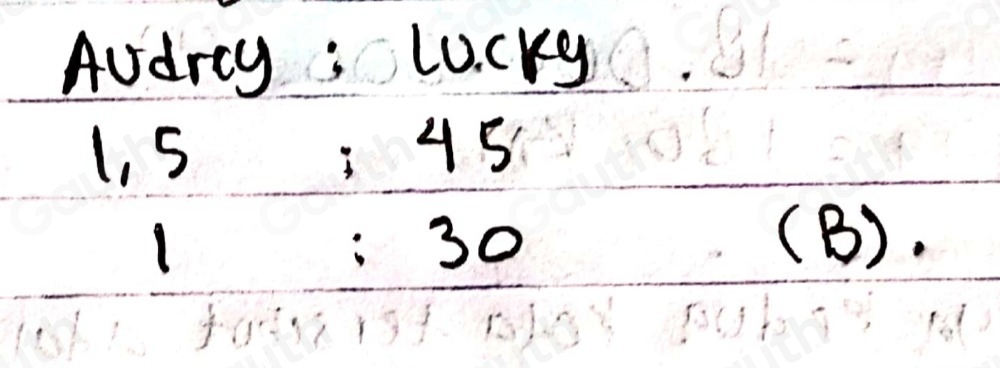 Audrey : Lucky
1,5 : 45
1 : 30 (B).